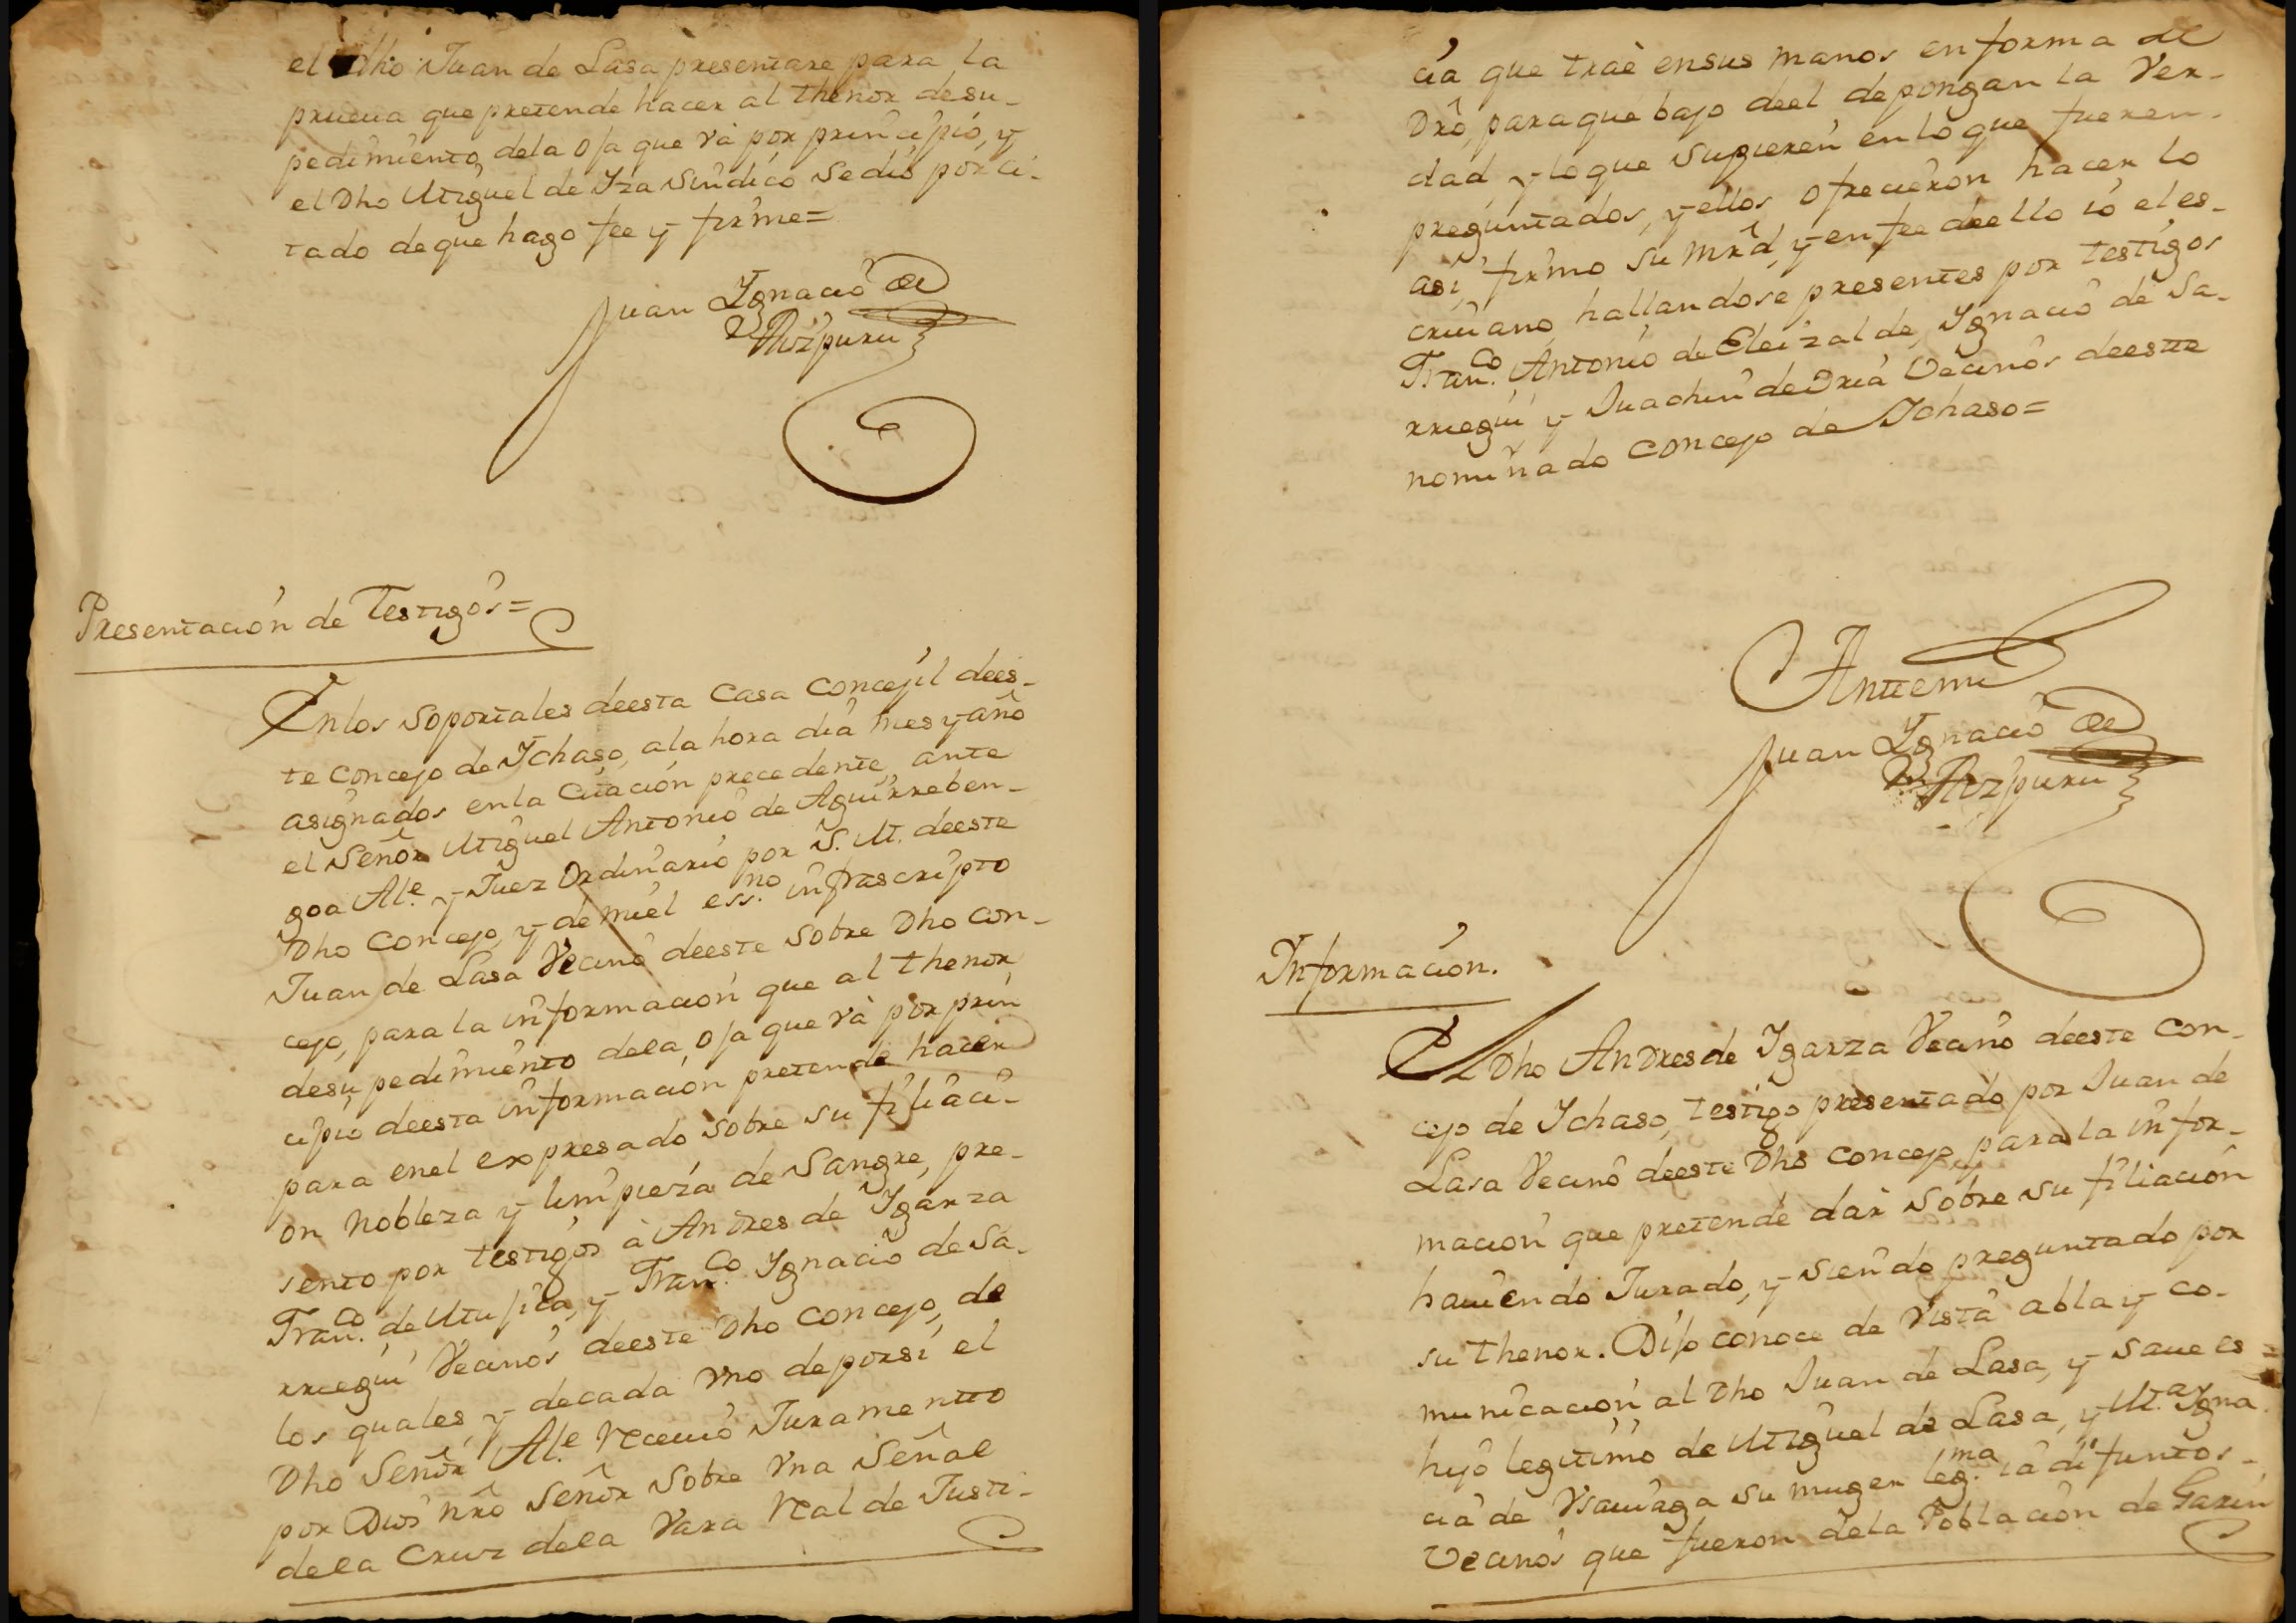 el Dho Juan de Lasa presentare para la
prueua que pretende hacer al thenor de su-
pedimiento, dela oja que và por principio, y
el Dho Miguel de Yza Sindico se dió por ci-
tado de que hago fee y firme=
Juan Ygnacio de
Aizpuru
Presentación de Testigos=
En los soportales deesta Casa Concejil dees-
te Concejo de Ychaso, a la hora dia mes y año
asignados en la Citación precedente, ante
el Señor Miguel Antonio de Aguirreben-
goa Al.e y Juez Ordinario por S. M. deeste
Dho Concejo, y de mi el ess.no infrascripto
Juan de Lasa Vecino deeste sobre Dho Con-
cejo, para la informacion que al thenor
desu pedimiento dela oja que và por prin
cipio deesta informacion pretende hacer
para enel expresado sobre su filiaci-
on Nobleza y limpieza de Sangre, pre-
sento por testigos à Andres de Ygarza
Fran.co de Mujica, y Fran.co Ygnacio de Sa-
rriegui Vecinos deeste Dho Concejo, de
los quales, y decada vno deporsi el
Dho Señor Al.e Reciuió Juramento
por Dios nro Señor sobre Vna Señal
dela Cruz dela Vara Real de Justi-
cia que traè ensus manos en forma de
Dro, para que bajo deel depongan la Ver-
dad y lo que Supieren en lo que fueren-
preguntados, y ellos ofrecieron hacer lo
asi, firmo su Mrd, y en fee deello io el es-
criuano, hallandose presentes por testigos
Fran.co Antonio de Eleizalde, Ygnacio de Sa-
rriegui y Juachin de Oria Vecinos deeste
nominado Concejo de Ychaso=
Antemi
Juan Ygnacio de
Aizpuru
Información.
El Dho Andres de Ygarza Vecino deeste Con-
cejo de Ychaso, testigo presentado por Juan de
Lasa Vecino deeste Dho Concejo, para la infor-
macion que pretende dar sobre su filiación
hauiendo Jurado, y siendo preguntado por
su thenor. Dijo conoce de Vista abla y co-
municacion al Dho Juan de Lasa, y saue es=
hijo legitimo de Miguel de Lasa, y M.a Ygna
cia de Vsauiaga su muger leg.ma ià difuntos-
Vecinos que fueron dela Población de Garin